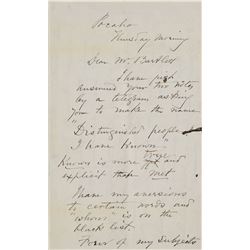 Pocaho
Thursday Morning
Dear Mr. Bartlett
I have just
answered your two notes
by a telegram asking
you to make the name
"Distinguished people
I have Known"
Known is more true and
explicit than met
I have my aversions
to certain words and
"whom" is on the
black list.
Four of my subjects